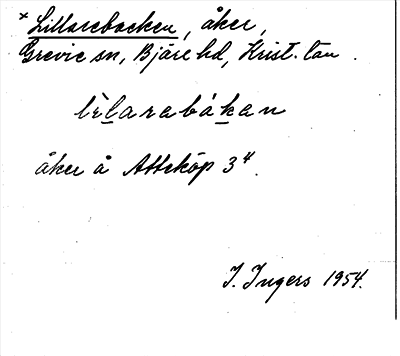 *Lillarebacken, åker,
Grevie sn, Bjäre hd, Krist. län.
lèlarabákan
åker å Atteköp 3⁴.
I. Ingers 1954.